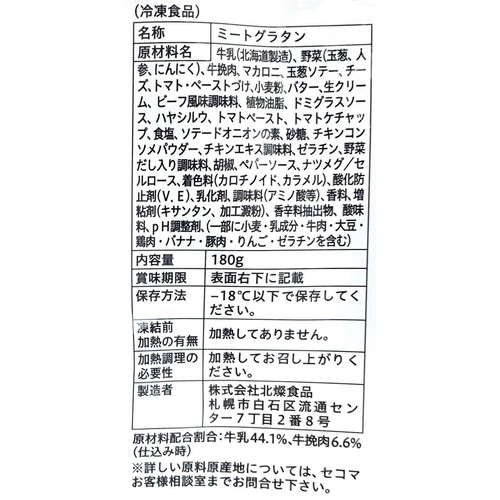 (冷凍食品)
名称 ミートグラタン
原材料名 牛乳(北海道製造)、野菜(玉葱、人
参、にんにく)、牛挽肉、マカロニ、玉葱ソテー、チー
ズ、トマト・ペーストづけ、小麦粉、バター、生クリー
ム、ビーフ風味調味料、植物油脂、ドミグラスソー
ス、ハヤシルウ、トマトペースト、トマトケチャッ
プ、食塩、ソテードオニオンの素、砂糖、チキンコン
ソメパウダー、チキンエキス調味料、ゼラチン、野菜
だし入り調味料、胡椒、ペパーソース、ナツメグ/セ
ルロース、着色料(カロチノイド、カラメル)、酸化防
止剤(V.E)、乳化剤、調味料(アミノ酸等)、香料、増
粘剤(キサンタン、加工澱粉)、香辛料抽出物、酸味
料、pH調整剤、(一部に小麦・乳成分・牛肉・大豆・
鶏肉・バナナ・豚肉・りんご・ゼラチンを含む)
内容量 180g
賞味期限 表面右下に記載
保存方法 −18℃以下で保存してく
ださい。
凍結前
加熱の有無 加熱してありません。
加熱調理の
必要性 加熱してお召し上がりく
ださい。
製造者 株式会社北燦食品
札幌市白石区流通セン
ター7丁目2番8号
原材料配合割合:牛乳44.1%、牛挽肉6.6%
(仕込み時)
※詳しい原料原産地については、セコマ
お客様相談室までお問合せ下さい。